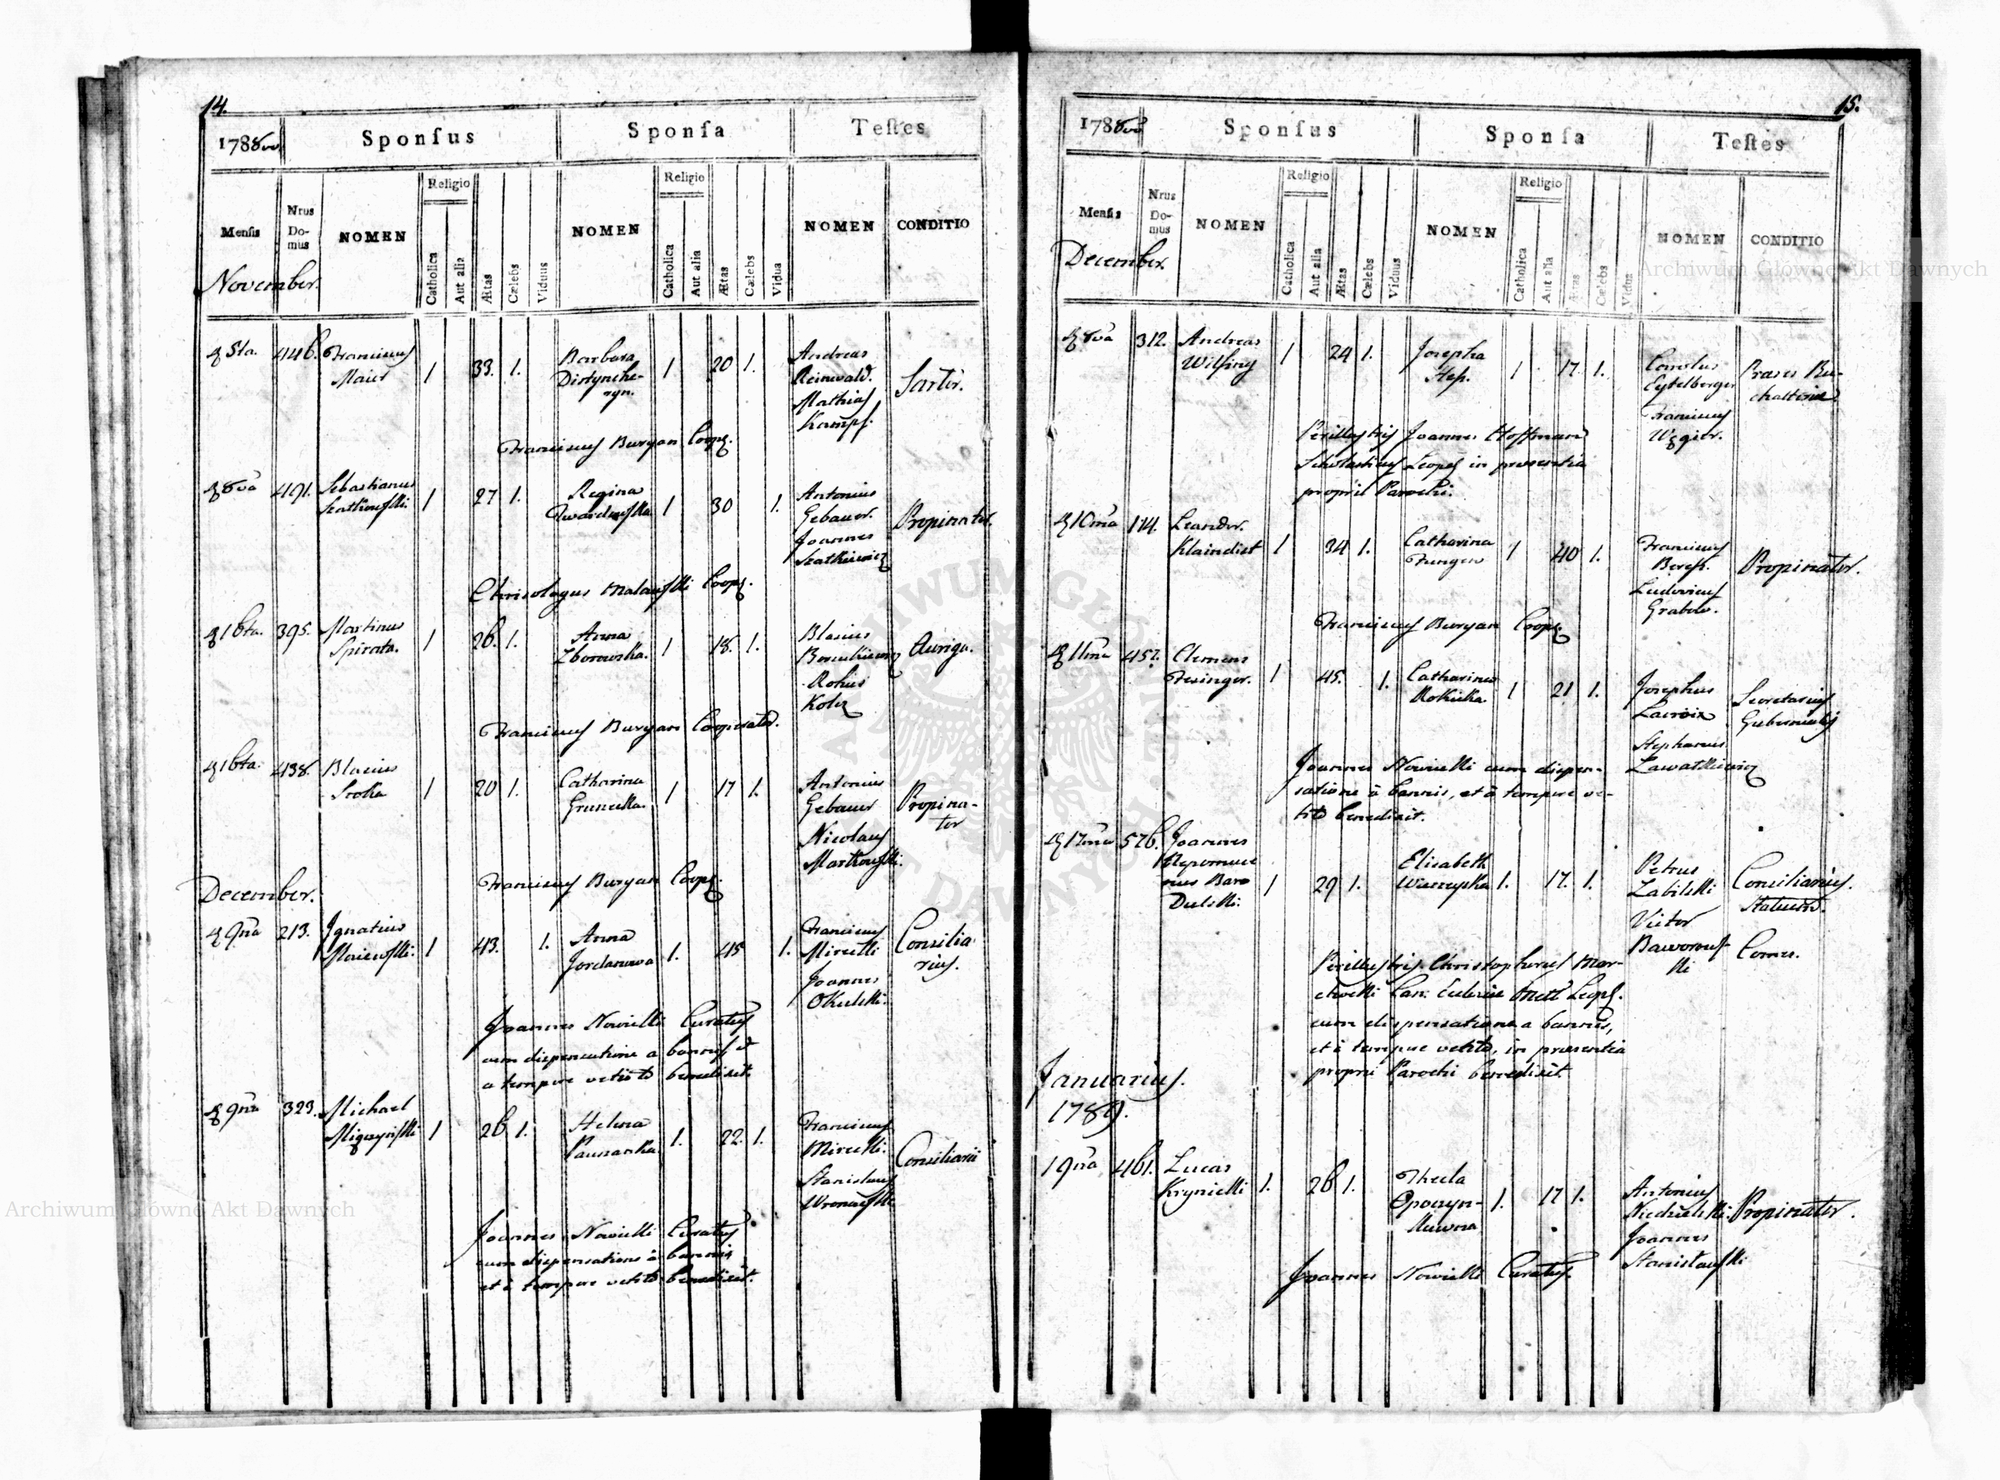 14.
1788vo
Sponsus
Sponsa
Testes
Mensis
Nrus Domus
NOMEN
Religio
Catholica
Aut alia
Ætas
Cælebs
Viduus
NOMEN
Religio
Catholica
Aut alia
Ætas
Cælebs
Vidua
NOMEN
CONDITIO
November.
5ta. 446. Franciscus Barbara Andreas
Maier 1 33. 1. 1 20 1. Reinwald. Sartor.
Mathias
Kampf.
Franciscus Buryan Coopr.
8va 491. Sebastianus 1 27 1. Regina 1 30 1. Antonius
Gebauer. Propinator.
Joannes
Chrisologus Malawski Coopr.
16ta. 395. Martinus 1 26. 1. Anna 1 18. 1. Blasius
Spirata. Zborowska. Auriga.
Rohus
Franciscus Buryan Cooperator.
16ta. 438. Blasius Catharina Antonius
Sroka 1 20 1. 1 17 1. Gebauer Propina-
Nicolaus tor
Franciscus Buryan Coopr.
December.
9na 213. Ignatius 1 43. 1. Anna 1. 45 1. Franciscus
Maiewski. Jordanowa Mirecki Consilia-
Joannes rius.
Okulski.
Joannes Nowicki Curatus
cum dispensatione a bannis et
a tempore vetito benedixit.
9na 323. Michael 1 26 1. Helena 1. 22. 1. Franciscus
Mirecki. Consiliarii
Stanislaus
Wronowski.
Joannes Nowicki Curatus
cum dispensatione à bannis
et à tempore vetito benedixit.
15.
1788vo
Sponsus
Sponsa
Testes
Mensis
Nrus Domus
NOMEN
Religio
Catholica
Aut alia
Ætas
Cælebs
Viduus
NOMEN
Religio
Catholica
Aut alia
Ætas
Cælebs
Vidua
NOMEN
CONDITIO
December.
8va 312. Andreas 1 24 1. Josepha 1 17. 1. Carolus
Wilfing Hess. Eytelberger Præses Bu-
Franciscus chalteriæ
Perillustris Joannes Hoffmann
Scholasticus Leopol. in præsentia
proprii Parochi.
10ma 114. Leander. 1 34 1. Catharina 1 40 1. Franciscus
Klaindist Propinator.
Ludovicus
Franciscus Buryan Coopr.
11ma 457. Clemens 1 45. 1. Catharina 1 21 1. Josephus Secretarius
Fesinger. Rokicka Lacroix Gubernialis
Stephanus
Joannes Nowicki cum dispen-
satione à bannis, et à tempore ve-
tito benedixit.
17ma 576. Joannes
Nepomuce
nus Baro 1 29 1. Elisabeth 1. 17. 1. Petrus Consiliarius
Dulski. Zabilski
Victor
Baworows- Comes.
ki
Perillustris Christophorus Mar-
Can: Ecclesiæ Metr. Leopol.
cum dispensatione a bannis,
et à tempore vetito, in præsentia
proprii Parochi benedixit.
Januarius.
1789.
19na 461. Lucas 1. 26 1. Thecla 1. 17 1. Antonius
Krynicki Niedzielski. Propinator.
Joannes
Stanislawski
Joannes Nowicki Curatus.
Archiwum Główne Akt Dawnych
Archiwum Główne Akt Dawnych
ARCHIWUM GŁÓWNE AKT DAWNYCH